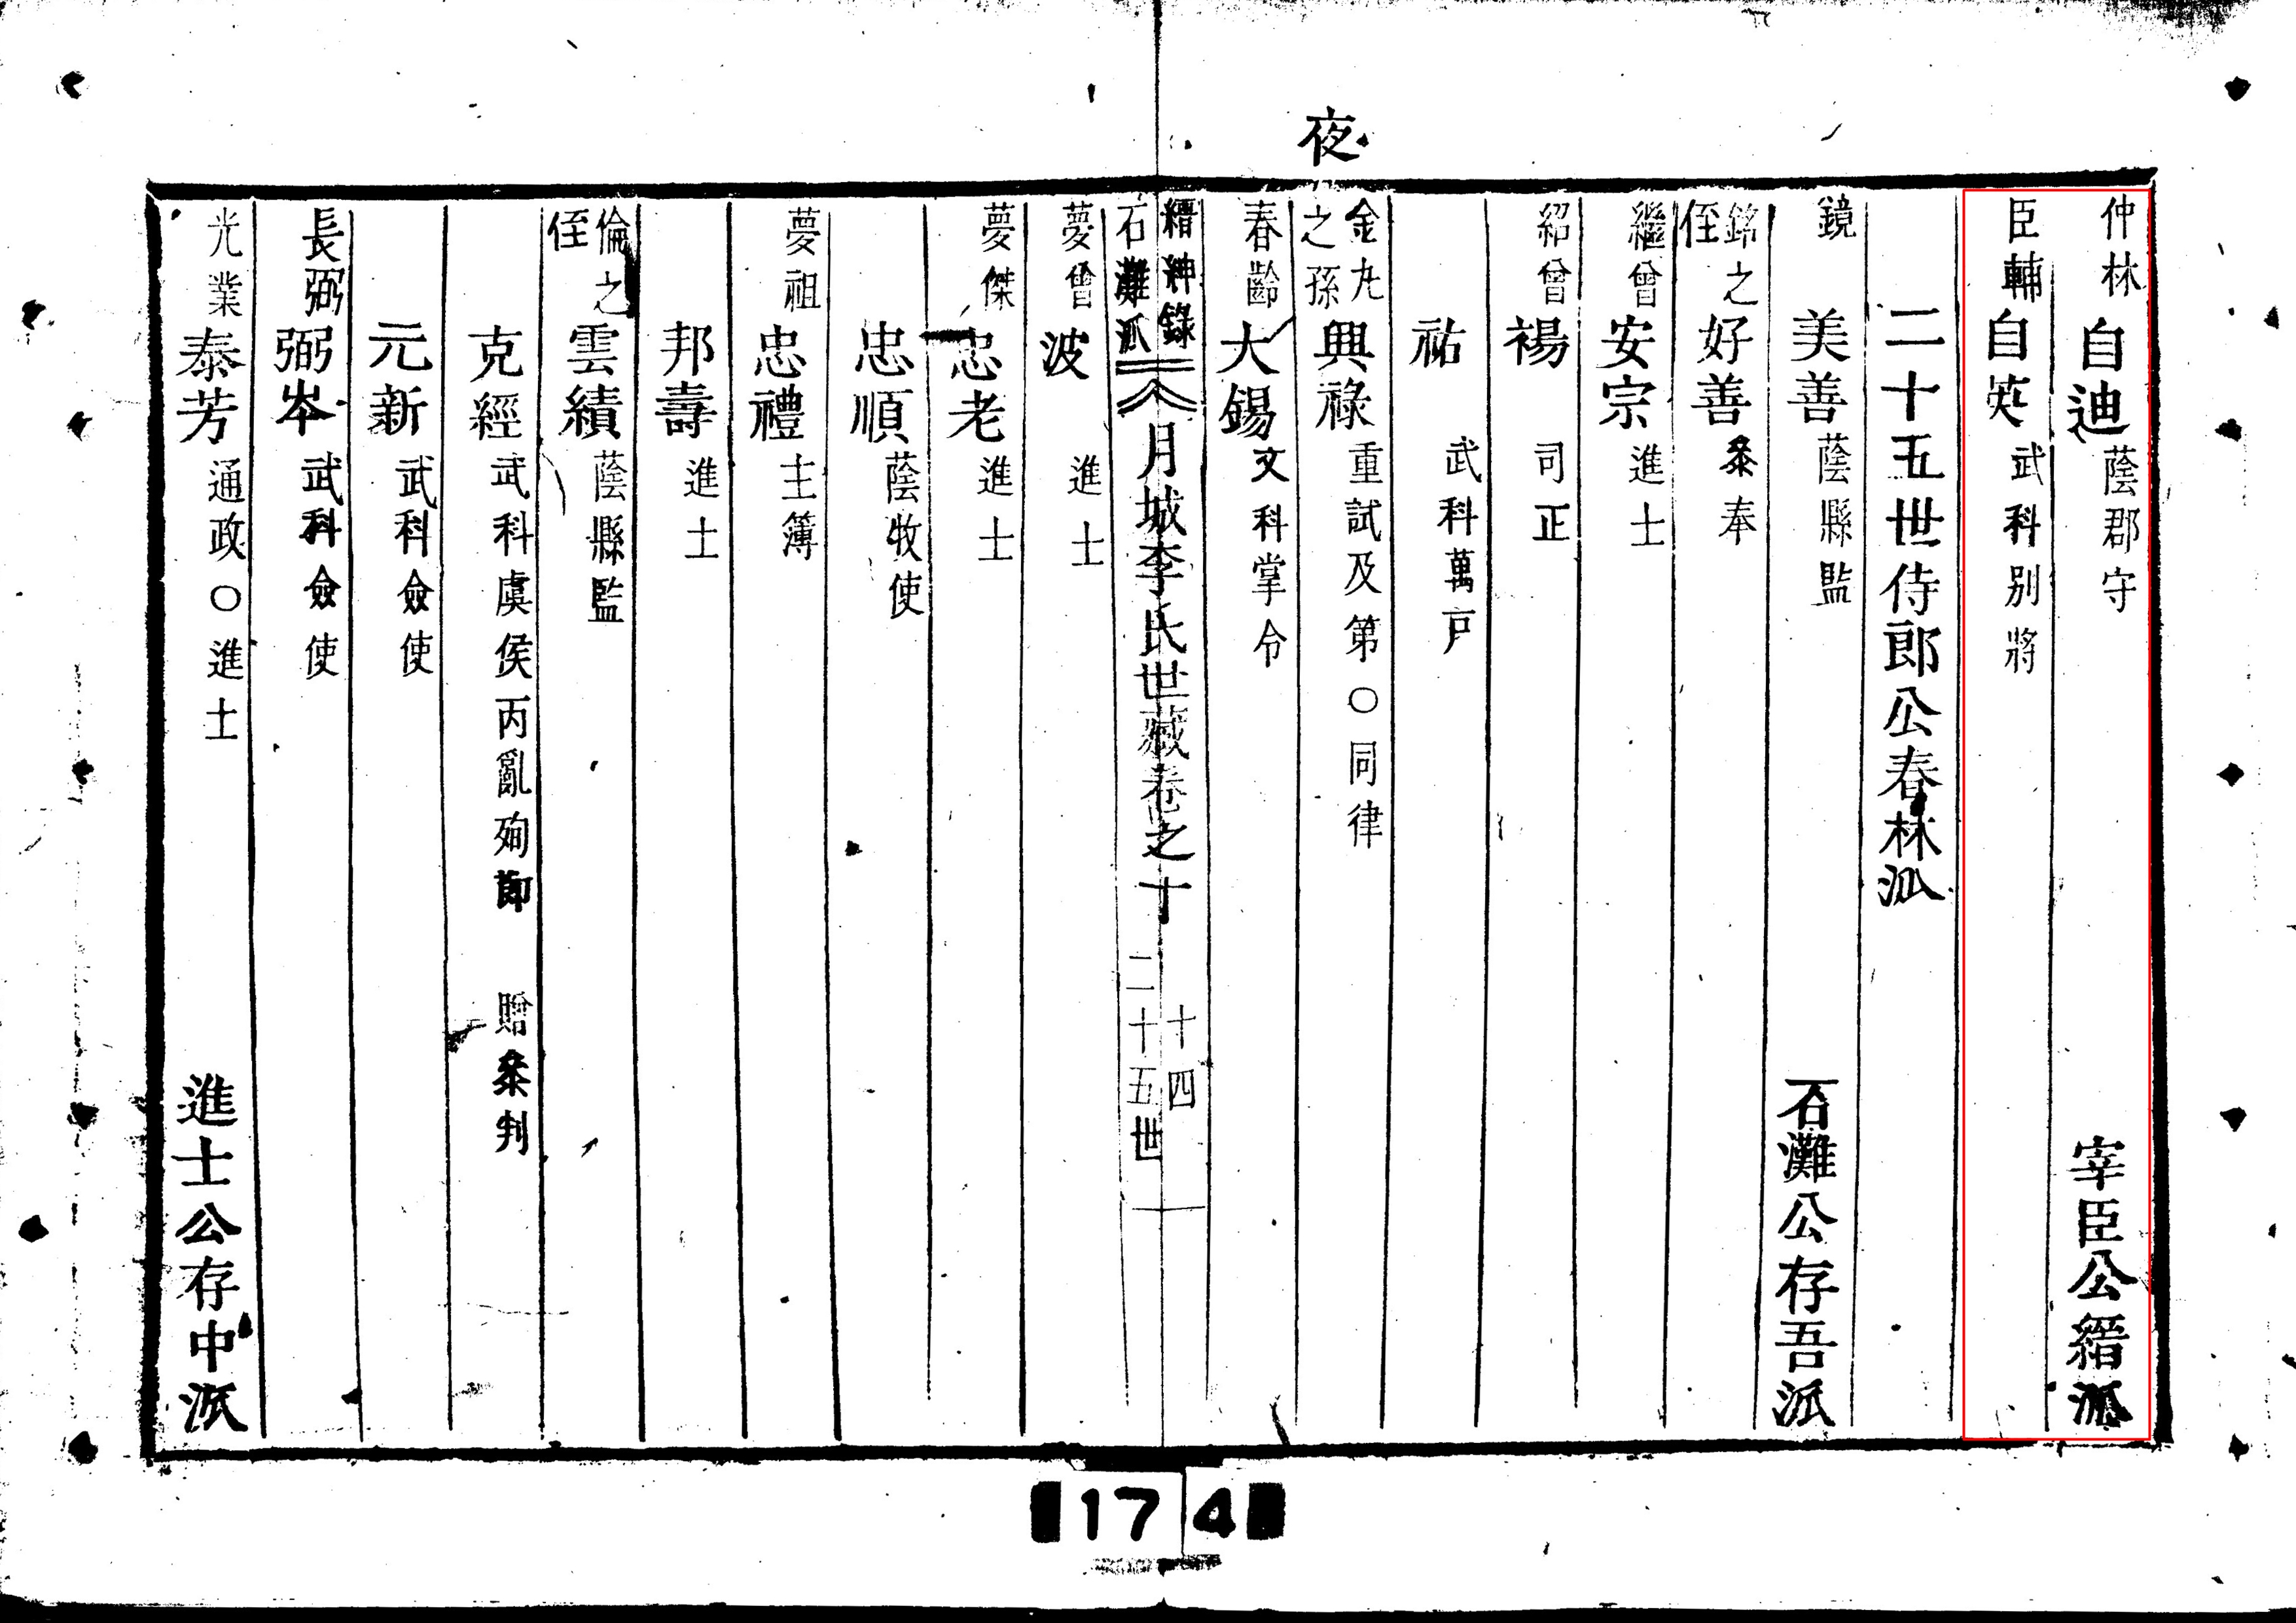 夜
仲林 自迪 蔭郡守 宰臣公縉派
臣輔 自英 武科別將
二十五世侍郎公春林派
鏡 美善 蔭縣監 石灘公存吾派
銘之侄 好善 叅奉
繼曾 安宗 進士
紹曾 禓 司正
祐 武科萬戶
金九之孫 興祿 重試及第○同律
春齡 大錫 文科掌令
縉紳錄 石灘派 二 月城李氏世藏卷之十 十四 二十五世
夢曾 波 進士
夢傑 忠老 進士
忠順 蔭牧使
夢祖 忠禮 主簿
邦壽 進士
倫之侄 雲績 蔭縣監
克經 武科虞侯丙亂殉節 贈叅判
元新 武科僉使
長弼 弼岑 武科僉使
光業 泰芳 通政○進士 進士公存中派
174